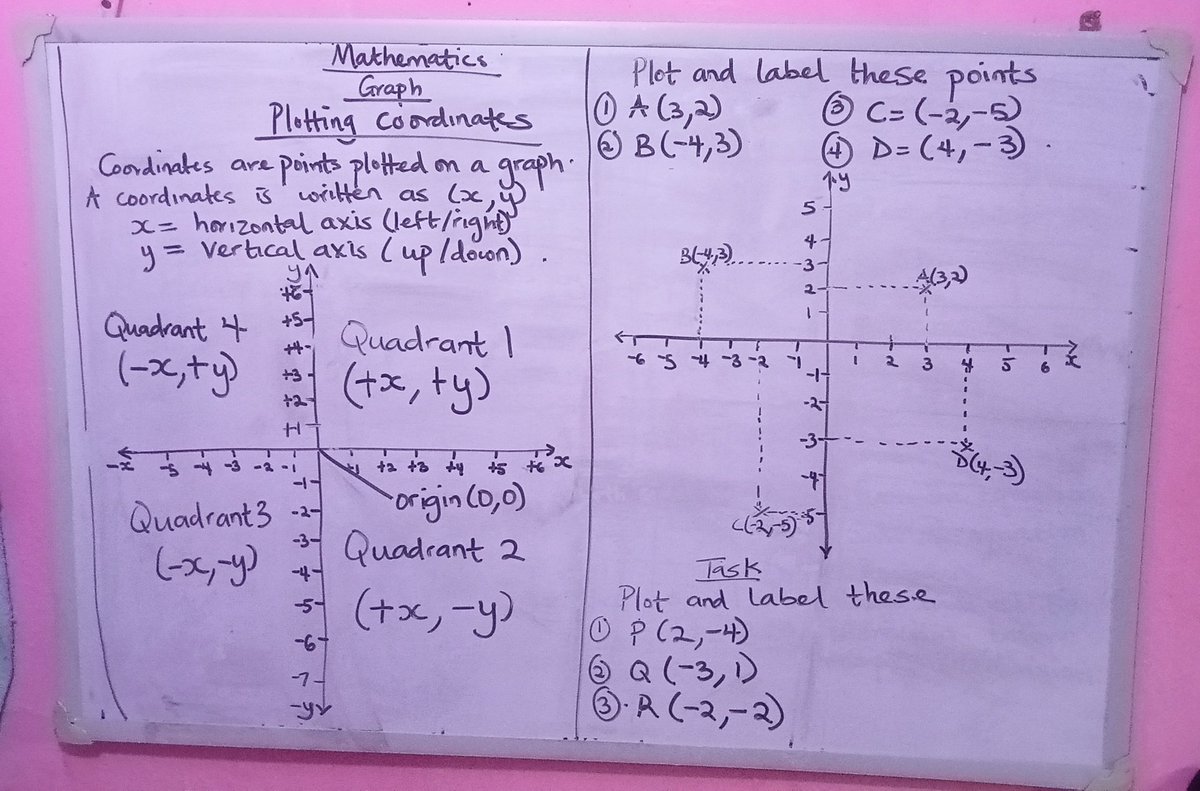 Mathematics
Graph
Plotting coordinates
Coordinates are points plotted on a graph.
A coordinates is written as (x, y)
x = horizontal axis (left/right)
y = vertical axis (up/down).
y
+6
+5
+4
+3
+2
+1
Quadrant 4
(-x, +y)
Quadrant 1
(+x, +y)
-x -5 -4 -3 -2 -1 +1 +2 +3 +4 +5 +6 x
origin (0,0)
Quadrant 3
(-x, -y)
Quadrant 2
(+x, -y)
-1
-2
-3
-4
-5
-6
-7
-y
Plot and label these points
① A (3,2)
② B (-4,3)
③ C= (-2,-5)
④ D= (4, -3).
y
5
4
3
2
1
B(-4,3)
A(3,2)
-6 -5 -4 -3 -2 -1 1 2 3 4 5 6 x
-1
-2
-3
-4
-5
D(4,-3)
C(-2,-5)
Task
Plot and label these
① P (2, -4)
② Q (-3, 1)
③. R (-2, -2)